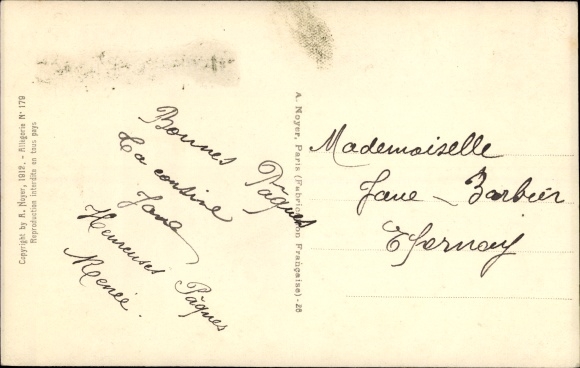 Copyright by A. Noyer, 1912. - Allégorie N° 179
Reproduction interdite en tous pays
Bonnes Pâques
ta cousine
Jane
Heureuses Pâques
Renée.
A. Noyer, Paris (Fabrication Française) - 26
Mademoiselle
Jane Barbier
Epernay